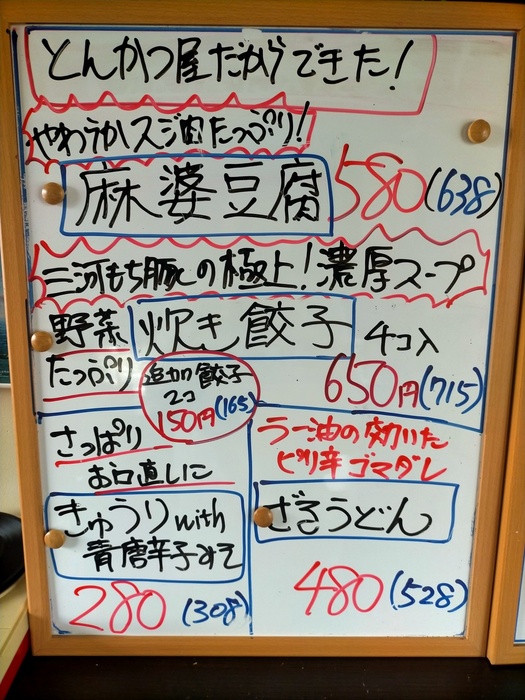 とんかつ屋だからできた!
やわらかスジ肉たっぷり!
麻婆豆腐 580(638)
三河もち豚の極上!濃厚スープ
野菜たっぷり 炊き餃子 4コ入
650円(715)
追加餃子
2コ
150円(165)
さっぱり
お口直しに
きゅうりwith
青唐辛子みそ
280(308)
ラー油の効いた
ピリ辛ゴマダレ
ざるうどん
480(528)